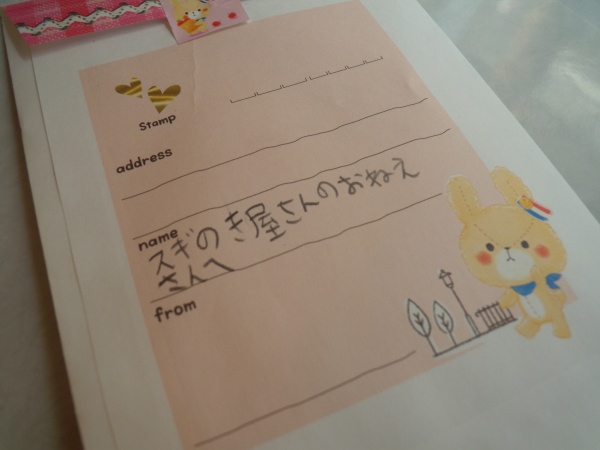 Stamp
address
name
スギのき屋さんのおねえ
さんへ
from